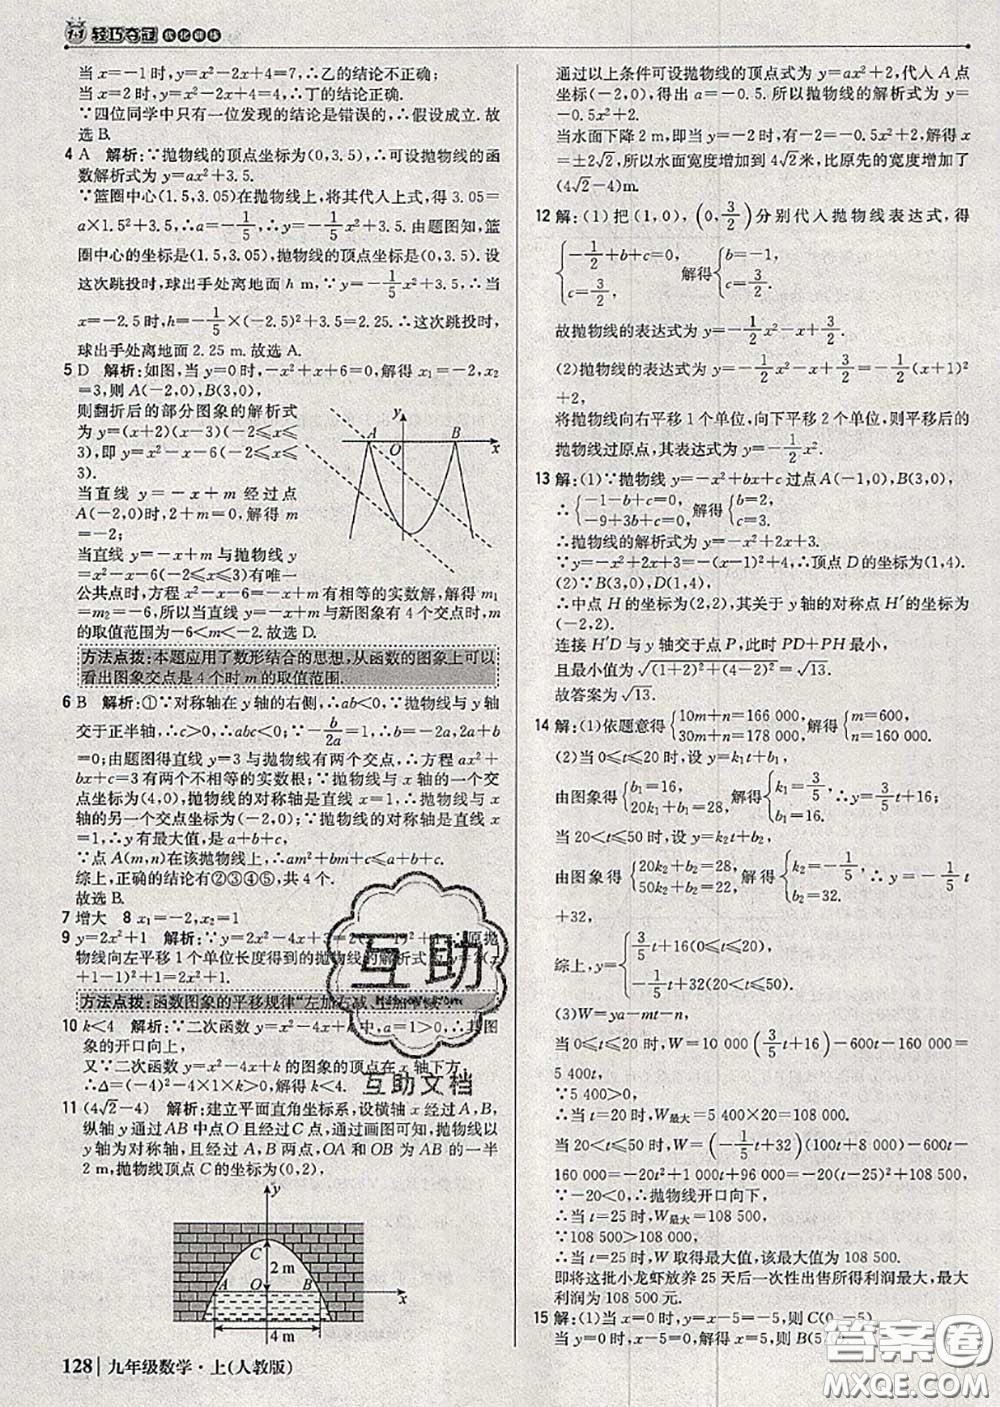 1+1 轻巧夺冠 优化训练
当 x=-1时,y=x²-2x+4=7,∴乙的结论不正确;
当 x=2时,y=x²-2x+4=4,∴丁的结论正确.
∵四位同学中只有一位发现的结论是错误的,∴假设成立.故
选 B.
4 A 解析:∵抛物线的顶点坐标为(0,3.5),∴可设抛物线的函
数解析式为y=ax²+3.5.
∵篮圈中心(1.5,3.05)在抛物线上,将其代入上式,得 3.05=
a×1.5²+3.5,∴a=-1/5,∴y=-1/5x²+3.5.由题图知,篮
圈中心的坐标是(1.5,3.05),抛物线的顶点坐标是(0,3.5).设
这次跳投时,球出手处离地面 h m,∵y=-1/5x²+3.5,∴当
x=-2.5时,h=-1/5×(-2.5)²+3.5=2.25.∴这次跳投时,
球出手处离地面 2.25 m.故选 A.
5 D 解析:如图,当 y=0时,-x²+x+6=0,解得 x₁=-2,x₂
=3,则 A(-2,0),B(3,0),
则翻折后的部分图象的解析式
为 y=(x+2)(x-3)(-2⩽x⩽
3),即 y=x²-x-6(-2⩽x⩽
3),
当直线 y=-x+m 经过点
A(-2,0)时,2+m=0,解得 m
=-2;
当直线 y=-x+m 与抛物线 y
=x²-x-6(-2⩽x⩽3)有唯一
公共点时,方程 x²-x-6=-x+m 有相等的实数解,解得 m₁
=m₂=-6,所以当直线 y=-x+m 与新图象有 4 个交点时,m
的取值范围为-6<m<-2.故选 D.
y
A
O
B
x
方法点拨:本题应用了数形结合的思想,从函数的图象上可以
看出图象交点是 4 个时 m 的取值范围.
6 B 解析:①∵对称轴在 y 轴的右侧,∴ab<0,∵抛物线与 y 轴
交于正半轴,∴c>0,∴abc<0;②∵-b/2a=1,∴b=-2a,∴2a+b
=0;③由题图得直线 y=3 与抛物线有两个交点,∴方程 ax²+bx+c
=3 有两个不相等的实数根;∵抛物线与 x 轴的一个交
点坐标为(4,0),抛物线的对称轴是直线 x=1,∴抛物线与 x
轴的另一个交点坐标为(-2,0);∵抛物线的对称轴是直线 x
=1,∴y 有最大值,是 a+b+c,
∵点 A(m,n)在该抛物线上,∴am²+bm+c⩽a+b+c.
综上,正确的结论有②③④⑤,共 4 个.
故选 B.
7 增大 8 x₁=-2,x₂=1
9 y=2x²+1 解析:∵y=2x²-4x+3=2(x-1)²+1,∴原抛
物线向左平移 1 个单位长度得到的抛物线的解析式为 y=2(x
+1-1)²+1=2x²+1.
方法点拨:函数图象的平移规律“左加右减、上加下减”.
10 k<4 解析:∵二次函数 y=x²-4x+k 中,a=1>0,∴其图
象的开口向上,
又∵二次函数 y=x²-4x+k 的图象的顶点在 x 轴下方,
∴Δ=(-4)²-4×1×k>0,解得 k<4.
11 (4√2-4) 解析:建立平面直角坐标系,设横轴 x 经过 A,B,
纵轴 y 通过 AB 中点 O 且经过 C 点,通过画图可知,抛物线以
y 轴为对称轴,且经过 A,B 两点,OA 和 OB 为 AB 的一半
2 m,抛物线顶点 C 的坐标为(0,2),
y
C
2 m
A
O
B
x
4 m
128 九年级数学·上(人教版)
通过以上条件可设抛物线的顶点式为 y=ax²+2,代入 A 点
坐标(-2,0),得出 a=-0.5.所以抛物线的解析式为 y=
-0.5x²+2.
当水面下降 2 m,即当 y=-2时,-2=-0.5x²+2,解得 x=
±2√2,所以水面宽度增加到 4√2米,比原先的宽度增加了
(4√2-4)m.
12 解:(1)把(1,0),(0,3/2)分别代入抛物线表达式,得
{-1/2+b+c=0, c=3/2, 解得{b=-1, c=3/2.
故抛物线的表达式为 y=-1/2x²-x+3/2.
(2)抛物线的表达式为 y=-1/2x²-x+3/2=-1/2(x+1)²
+2,
将抛物线向右平移 1 个单位,向下平移 2 个单位,则平移后的
抛物线过原点,其表达式为 y=-1/2x².
13 解:(1)∵抛物线 y=-x²+bx+c 过点 A(-1,0),B(3,0),
∴{-1-b+c=0, -9+3b+c=0, 解得{b=2, c=3.
∴抛物线的解析式为 y=-x²+2x+3.
∵y=-x²+2x+3=-(x-1)²+4,∴顶点 D 的坐标为(1,4).
(2)∵B(3,0),D(1,4),
∴中点 H 的坐标为(2,2),其关于 y 轴的对称点 H′的坐标为
(-2,2).
连接 H′D 与 y 轴交于点 P,此时 PD+PH 最小,
且最小值为√((1+2)²+(4-2)²)=√13.
故答案为√13.
14 解:(1)依题意得{10m+n=166 000, 30m+n=178 000, 解得{m=600, n=160 000.
(2)当 0⩽t⩽20 时,设 y=k₁t+b₁,
由图象得{b₁=16, 20k₁+b₁=28, 解得{k₁=3/5, b₁=16. ∴y=3/5t+16;
当 20<t⩽50 时,设 y=k₂t+b₂,
由图象得{20k₂+b₂=28, 50k₂+b₂=22, 解得{k₂=-1/5, b₂=32. ∴y=-1/5t
+32,
综上,y={3/5t+16(0⩽t⩽20), -1/5t+32(20<t⩽50).
(3)W=ya-mt-n,
当 0⩽t⩽20 时,W=10 000(3/5t+16)-600t-160 000=
5 400t.
∵5 400>0,
∴当 t=20 时,W最大=5 400×20=108 000.
当 20<t⩽50 时,W=(-1/5t+32)(100t+8 000)-600t-
160 000=-20t²+1 000t+96 000=-20(t-25)²+108 500.
∵-20<0,∴抛物线开口向下,
∴当 t=25 时,W最大=108 500.
∵108 500>108 000,
∴当 t=25 时,W 取得最大值,该最大值为 108 500.
即将这批小龙虾放养 25 天后一次性出售所得利润最大,最大
利润为 108 500 元.
15 解:(1)当 x=0 时,y=x-5=-5,则 C(0,-5),
当 y=0 时,x-5=0,解得 x=5,
互助
互助文档
答案圈
MXQE.COM